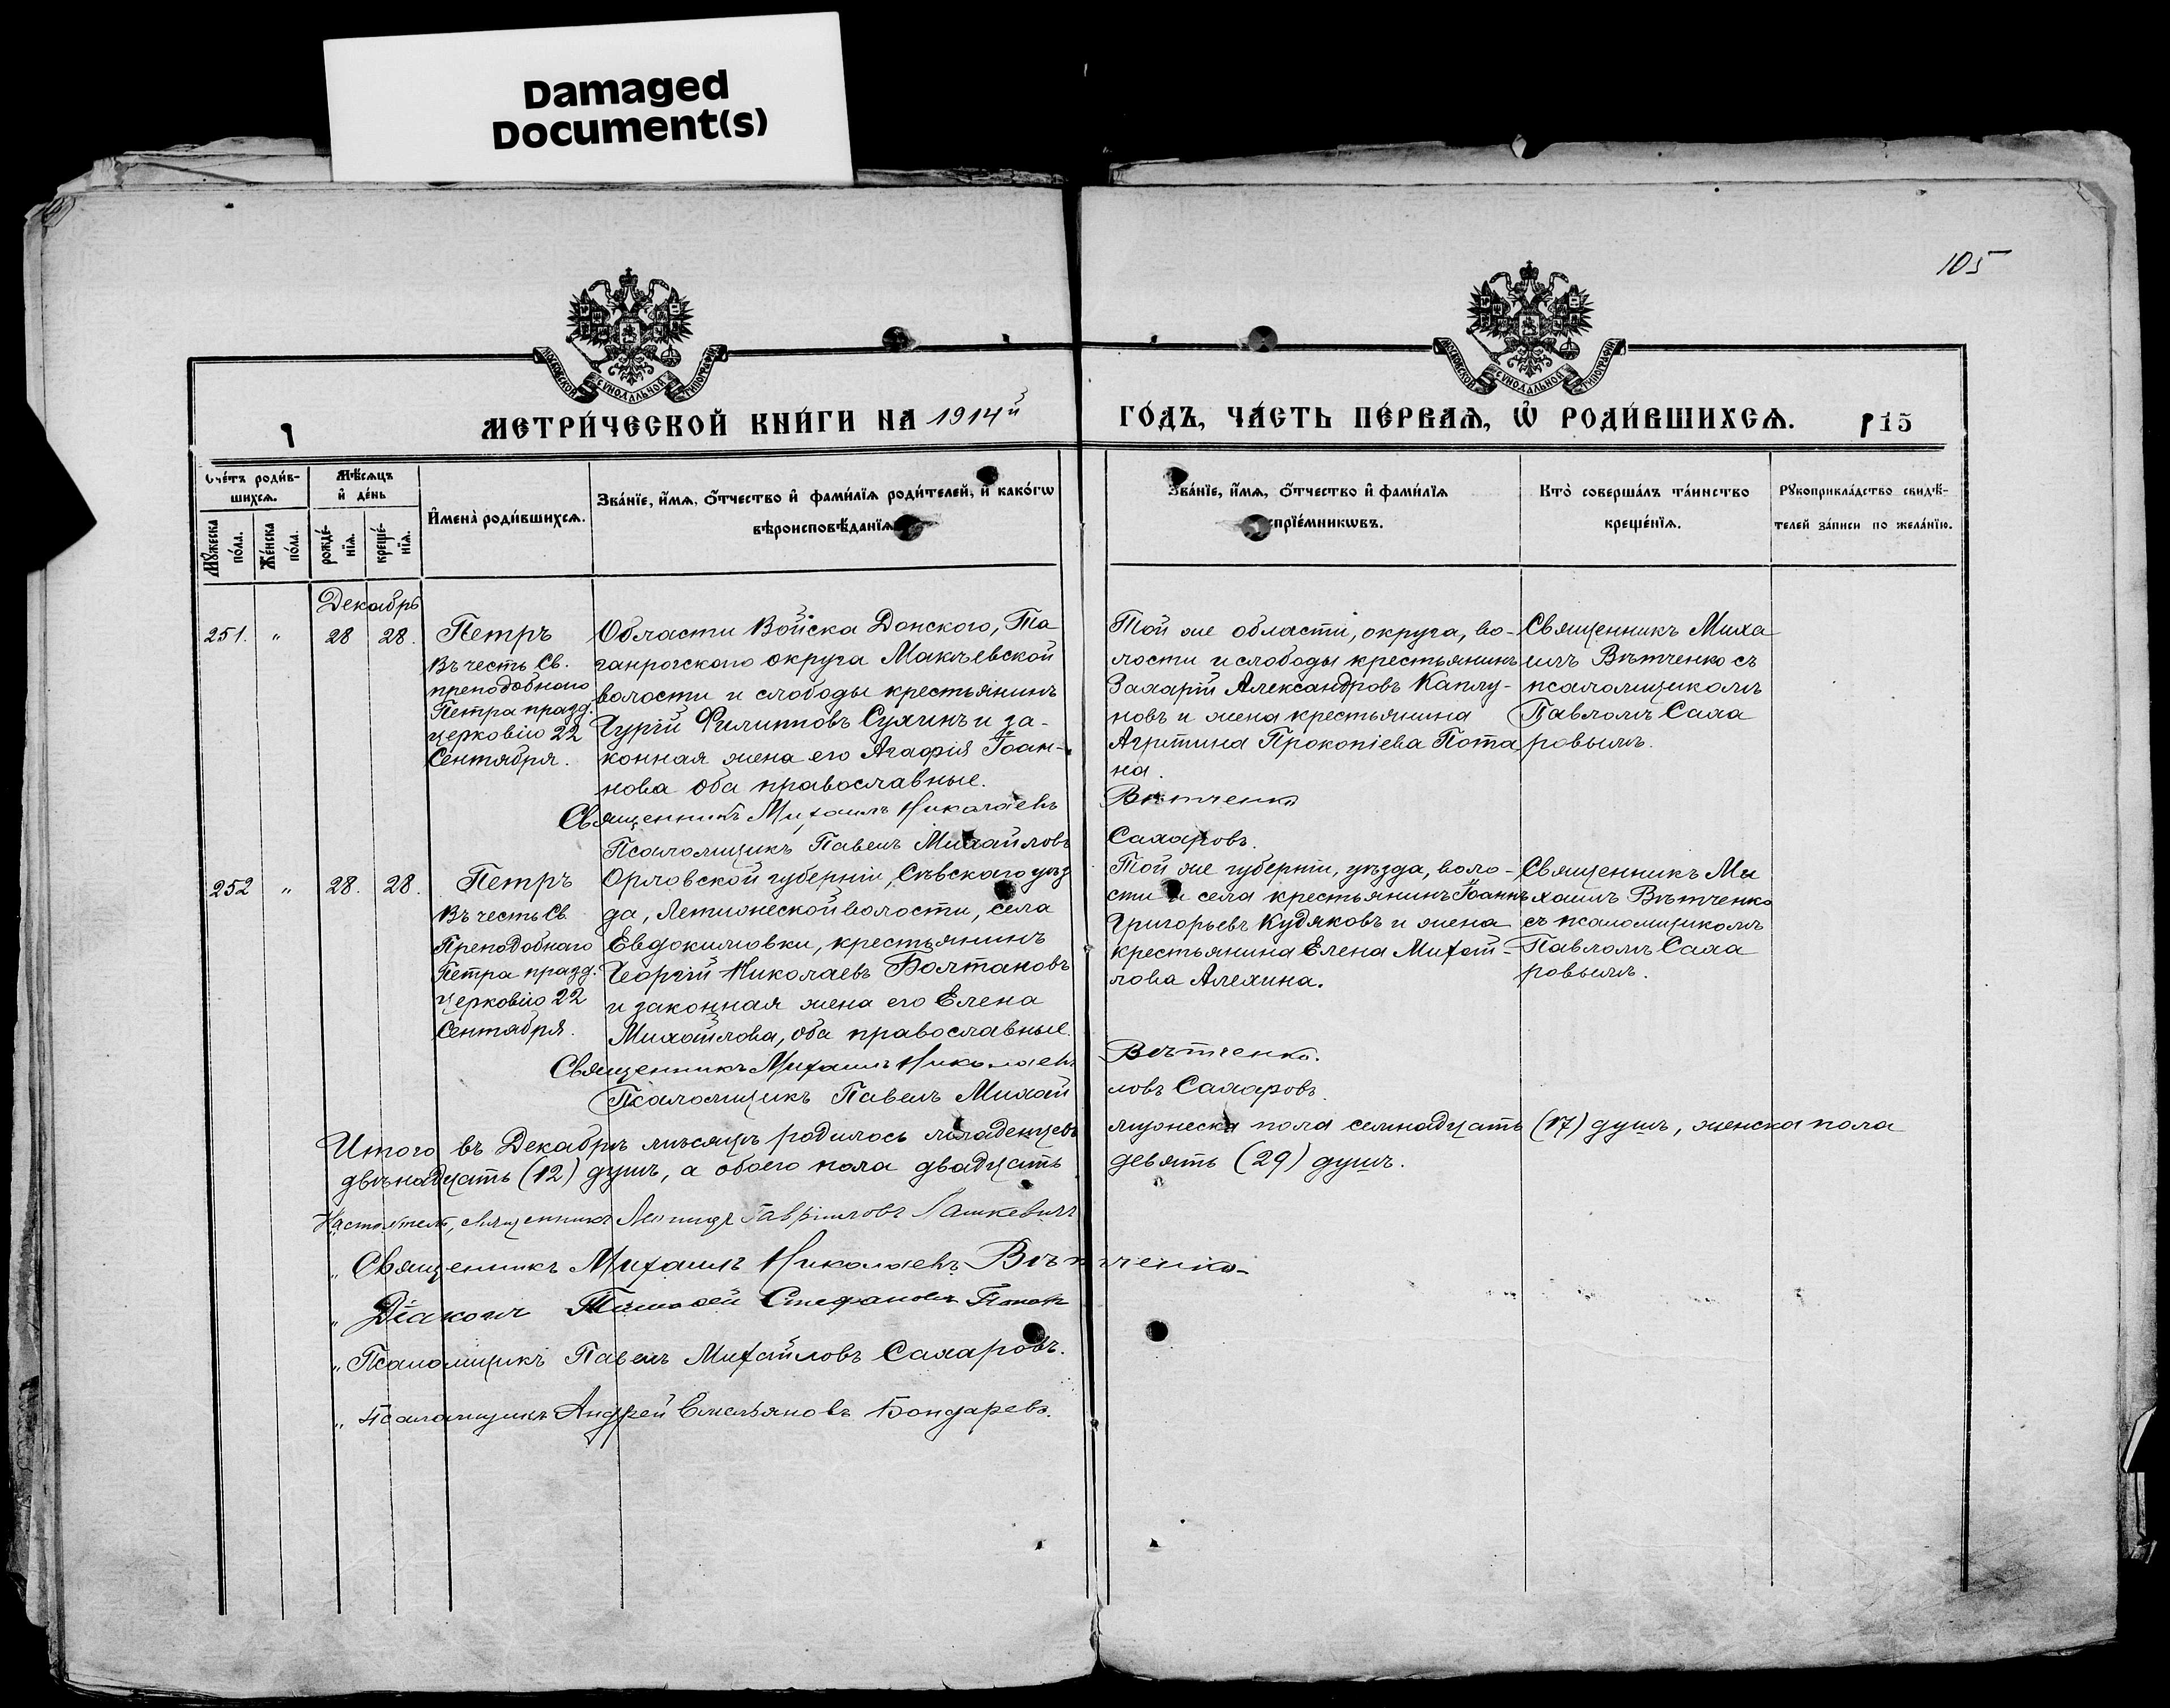 Damaged
Document(s)
105
МОСКОВСКОЙ СѴНОДАЛЬНОЙ ТИПОГРАФІИ
МОСКОВСКОЙ СѴНОДАЛЬНОЙ ТИПОГРАФІИ
МЕТРИ́ЧЕСКОЙ КНИ́ГИ НА 1914й
ГО́ДЪ, ЧА́СТЬ ПЕ́РВАѦ, Ѡ҆ РОДИ́ВШИХСѦ.
15
Сче́тъ роди́в-
шихсѧ.
Мꙋ́жеска по́ла.
Же́нска по́ла.
Мѣ́сѧцъ
и҆ де́нь
рожде́-нїѧ.
креще́-нїѧ.
И҆мена̀ роди́вшихсѧ.
Зва́нїе, и҆́мѧ, ѻ҆́тчество и҆ фами́лїѧ роди́телей, и҆ како́гѡ
вѣроисповѣ́данїѧ
Зва́нїе, и҆́мѧ, ѻ҆́тчество и҆ фами́лїѧ
спрїе́мникѡвъ.
Кто̀ соверша́лъ та́инство
креще́нїѧ.
Рꙋкоприкла́дство свидѣ́-
телей за́писи по жела́нїю.
Декабрь
251. " 28 28. Петръ
Въ честь Св.
преподобнаго
Петра празд.
церковію 22
Сентября.
Области Войска Донского, Та
ганрогскаго округа Макѣевской
волости и слободы крестьянинъ
Гурій Филипповъ Сухинъ и за-
конная жена его Агафія Іоан-
нова оба православные.
Священникъ Михаилъ Николаевъ
Псаломщикъ Павелъ Михайловъ
Той же области, округа, во-
лости и слободы крестьянинъ
Захарій Александровъ Каплу-
новъ и жена крестьянина
Агрипина Прокопіева Пота
на.
Вѣтченко
Сахаровъ.
Священникъ Миха
илъ Вѣтченко съ
псаломщикомъ
Павломъ Саха
ровымъ.
252 " 28. 28. Петръ
Въ честь Св.
Преподобнаго
Петра празд.
церковію 22
Сентября.
Орловской губерніи, Сѣвскаго уѣз
да, волости, села
Евдокимовки, крестьянинъ
Георгій Николаевъ Болтаковъ
и законная жена его Елена
Михайлова, оба православные.
Священникъ Михаилъ Николаевъ
Псаломщикъ Павелъ Михай
Той же губерніи, уѣзда, воло-
сти и села крестьянинъ Іоаннъ
Григорьевъ Кудяковъ и жена
крестьянина Елена Михай-
лова Алехина.
Вѣтченко.
ловъ Сахаровъ.
Священникъ Ми
хаилъ Вѣтченко
съ псаломщикомъ
Павломъ Саха
ровымъ.
Итого въ Декабрѣ мѣсяцѣ родилось младенцевъ мужеска пола семнадцать (17) душъ, женска пола
двѣнадцать (12) душъ, а обоего пола двадцать девять (29) душъ.
Настоятель, священникъ Леонидъ Гавріиловъ
" Священникъ Михаилъ Николаевъ Вѣтченко
" Діаконъ Тимофей Стефановъ Попов
" Псаломщикъ Павелъ Михайловъ Сахаровъ.
" Псаломщикъ Андрей Емельяновъ Бондаревъ.